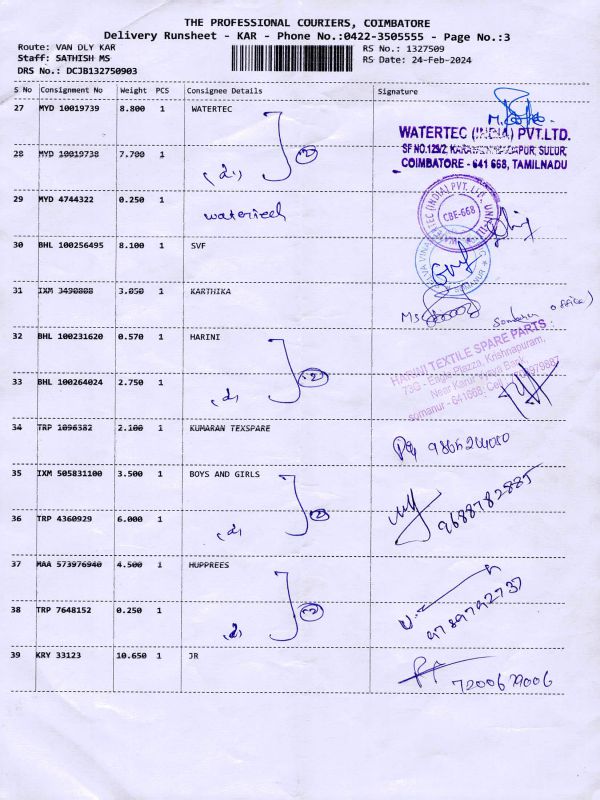 THE PROFESSIONAL COURIERS, COIMBATORE
Delivery Runsheet - KAR - Phone No.:0422-3505555 - Page No.:3
Route: VAN DLY KAR
RS No.: 1327509
Staff: SATHISH MS
RS Date: 24-Feb-2024
DRS No.: DCJB132750903
S No Consignment No Weight PCS Consignee Details Signature
27 MYD 10019739 8.800 1 WATERTEC
WATERTEC (INDIA) PVT.LTD.
28 MYD 10019738 7.700 1
COIMBATORE - 641 668, TAMILNADU
29 MYD 4744322 0.250 1 watertech
CBE-668
30 BHL 100256495 8.100 1 SVF
31 IXM 3490808 3.050 1 KARTHIKA
32 BHL 100231620 0.570 1 HARINI
HARINI TEXTILE SPARE PARTS
33 BHL 100264024 2.750 1
34 TRP 1096382 2.100 1 KUMARAN TEXSPARE
35 IXM 505831100 3.500 1 BOYS AND GIRLS
9688782885
36 TRP 4360929 6.000 1
37 MAA 573976940 4.500 1 HUPPREES
9789792737
38 TRP 7648152 0.250 1
39 KRY 33123 10.650 1 JR
7200679006